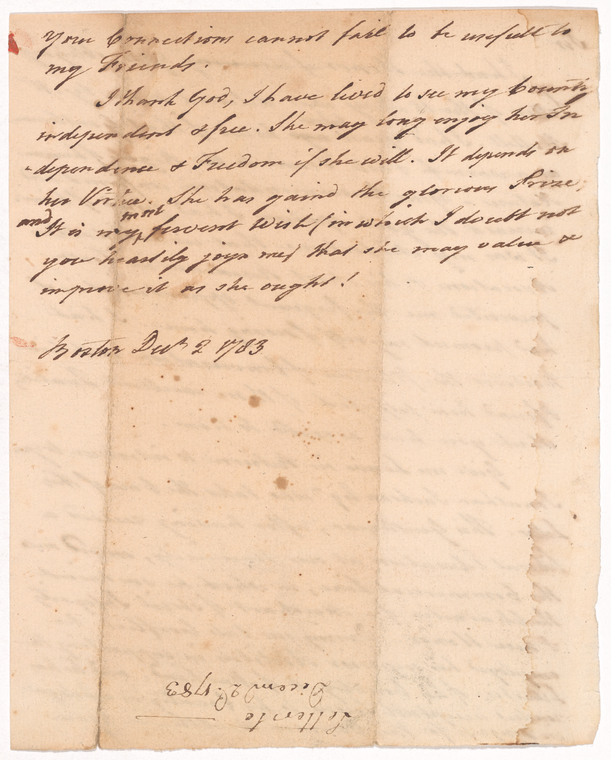 your Connections cannot fail to be usefull to
my Friends.
I thank God, I have lived to see my Country
independent & free. She may long enjoy her In
-dependence & Freedom if she will. It depends on
her Virtue. She has gaind the glorious Prize,
and It is my most fervent Wish (in which I doubt not
you heartily joyn me) that she may value &
improve it as she ought!
Boston Decr 2 1783
Letter to
Decem 2d. 1783